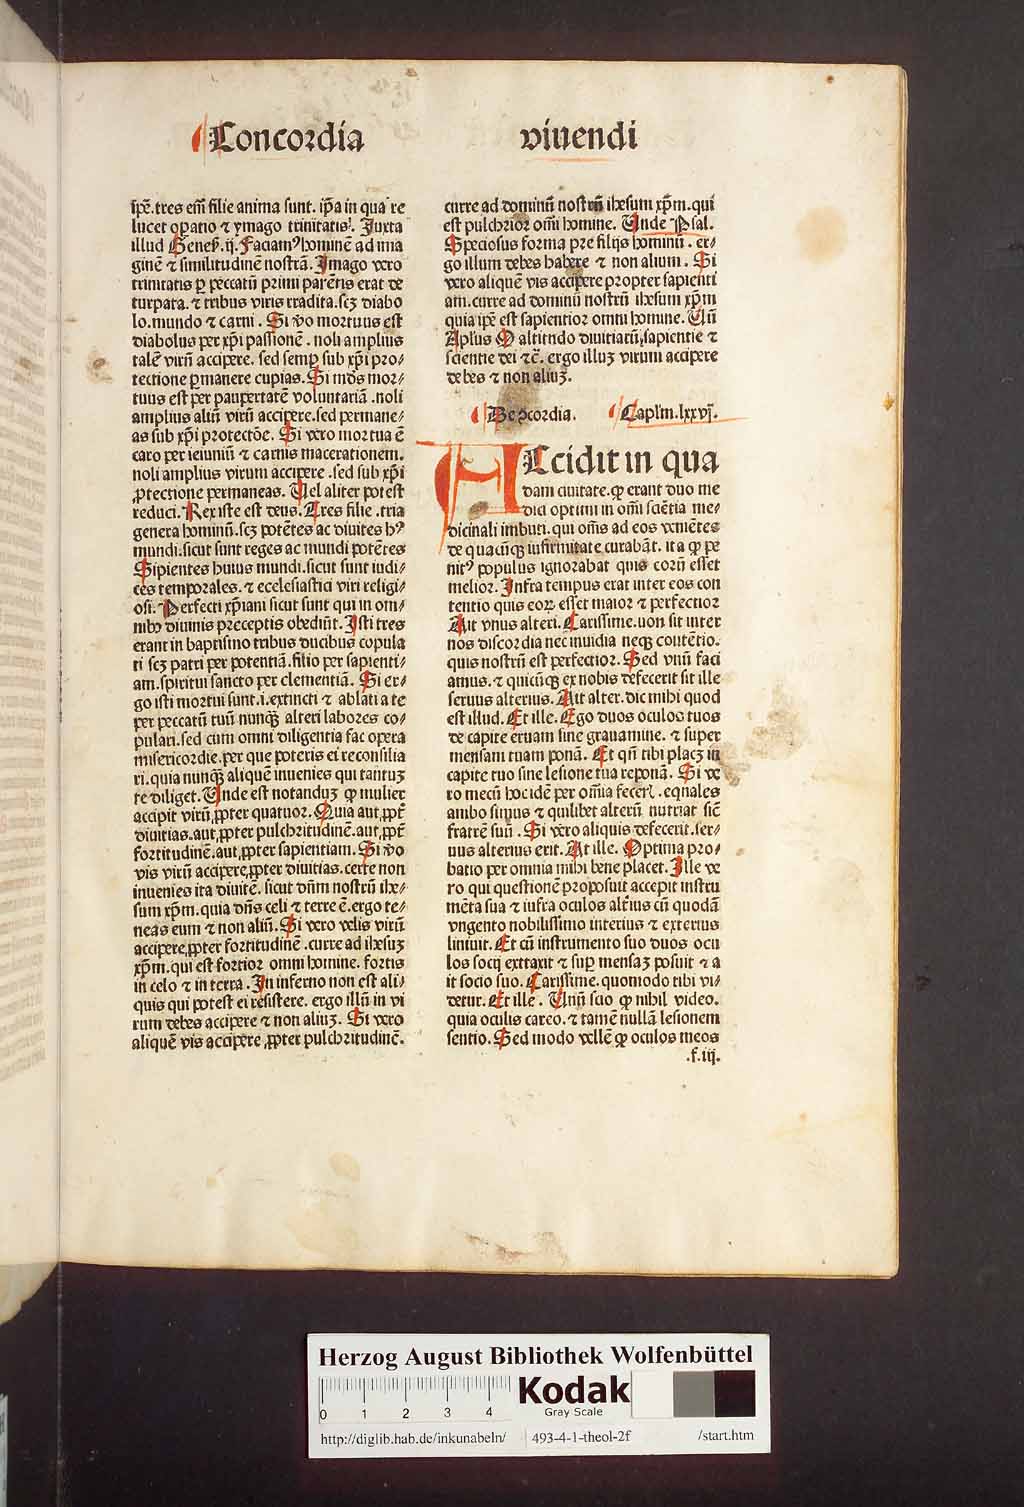 Concordia viuendi
ip̄e. tres em̄ filie anima sunt. ip̄a in qua re
lucet oꝑatio ⁊ ymago trinitatis. Juxta
illud Geneß. ij. Faciamꝰ hominē ad ima
ginē ⁊ similitudinē nostrā. Jmago vero
trinitatis ꝑ peccatū primi parētis erat de
turpata. ⁊ tribus viris tradita. scꝫ diabo
lo. mundo ⁊ carni. Si v̄o mortuus est
diabolus per xp̄i passionē. noli amplius
talē virū accipere. sed semꝑ sub xp̄i pro⸗
tectione ꝑmanere cupias. Si mūdꝰ mor⸗
tuus est per paupertatē voluntariā. noli
amplius aliū virū accipere. sed permane⸗
as sub xp̄i protectōe. Si vero mortua ē
caro per ieiuniū ⁊ carnis macerationem.
noli amplius virum accipere. sed sub xp̄i
ꝓtectione permaneas. Uel aliter potest
reduci. Rex iste est deus. Tres filie. tria
genera hominū. scꝫ potētes ac diuites hꝰ
mundi. sicut sunt reges ac mundi potētes
Sipientes huius mundi. sicut sunt iudi⸗
ces temporales. ⁊ ecclesiastici viri religi⸗
osi. Perfecti xp̄iani sicut sunt qui in om⸗
nibꝰ diuinis preceptis obediūt. Jsti tres
erant in baptismo tribus ducibus copula
ti scꝫ patri per potentiā. filio per sapienti⸗
am. spiritui sancto per clementiā. Si er⸗
go isti mortui sunt. i. extincti ⁊ ablati a te
per peccatū tuū nunqꝫ alteri labores co⸗
pulari. sed cum omni diligentia fac opera
misericordie. per que poteris ei reconsilia
ri. quia nunqꝫ aliquē inuenies qui tantuꝫ
te diliget. Unde est notanduꝫ ꝙ mulier
accipit virū ꝓpter quatuor. Quia aut ꝓpt̄
diuitias. aut ꝓpter pulchritudinē. aut ꝓpt̄
fortitudinē. aut ꝓpter sapientiam. Si v̄o
vis virū accipere ꝓpter diuitias. certe non
inuenies ita diuitē. sicut dn̄m nostrū ihe⸗
sum xp̄m. quia dn̄s celi ⁊ terre ē. ergo te⸗
neas eum ⁊ non aliū. Si vero velis virū
accipere ꝓpter fortitudinē. curre ad ihesuꝫ
xp̄m. qui est fortior omni homine. fortis
in celo ⁊ in terra. Jn inferno non est ali⸗
quis qui potest ei resistere. ergo illū in vi
rum debes accipere ⁊ non aliuꝫ. Si vero
aliquē vis accipere ꝓpter pulchritudinē.
curre ad dominū nostrū ihesum xp̄m. qui
est pulchrior om̄i homine. Unde Psal.
Speciosus forma pre filijs hominū. er⸗
go illum debes habere ⁊ non alium. Si
vero aliquē vis accipere propter sapienti
am. curre ad dominū nostrū ihesum xp̄m
quia ip̄e est sapientior omni homine. Uñ
Apl̄us O altitndo diuitiarū sapientie ⁊
scientie dei ⁊c̄. ergo illuꝫ virum accipere
debes ⁊ non aliuꝫ.
De ꝯcordia. Capl̄m. lxxvj.
ACcidit in qua
dam ciuitate. ꝙ erant duo me
dici optimi in om̄i sciētia me⸗
dicinali imbuti. qui om̄s ad eos veniētes
de quacūqꝫ infirmitate curabāt. ita ꝙ pe
nitꝰ populus ignorabat quis eorū esset
melior. Jnfra tempus erat inter eos con
tentio quis eoꝝ esset maior ⁊ perfectior
Ait vnus alteri. Carissime. uon sit inter
nos discordia nec inuidia neqꝫ contētio.
quis nostrū est perfectior. Sed vnū faci
amus. ⁊ quicūqꝫ ex nobis defecerit sit ille
seruus alterius. Ait alter. dic mihi quod
est illud. Et ille. Ego duos oculos tuos
de capite eruam sine grauamine. ⁊ super
mensam tuam ponā. Et qn̄ tibi placꝫ in
capite tuo sine lesione tua reponā. Si ve
ro mecū hoc idē per om̄ia fecerꝭ. eqnales
ambo simus ⁊ quilibet alterū nutriat sic̄
fratrē suū. Si vero aliquis defecerit. ser⸗
uus alterius erit. At ille. Optima pro⸗
batio per omnia mihi bene placet. Jlle ve
ro qui questionē proposuit accepit instru
mēta sua ⁊ iufra oculos alt̄ius cū quodā
vngento nobilissimo interius ⁊ exterius
liniuit. Et cū instrumento suo duos ocu
los socij extraxit ⁊ suꝑ mensaꝫ posuit ⁊ a
it socio suo. Carissime. quomodo tibi vi⸗
detur. Et ille. Unū scio ꝙ nihil video.
quia oculis careo. ⁊ tamē nullā lesionem
sentio. Sed modo vellē ꝙ oculos meos
.f. iij.
Herzog August Bibliothek Wolfenbüttel
0 1 2 3 4
Kodak
Gray Scale
http://diglib.hab.de/inkunabeln/ 493-4-1-theol-2f /start.htm